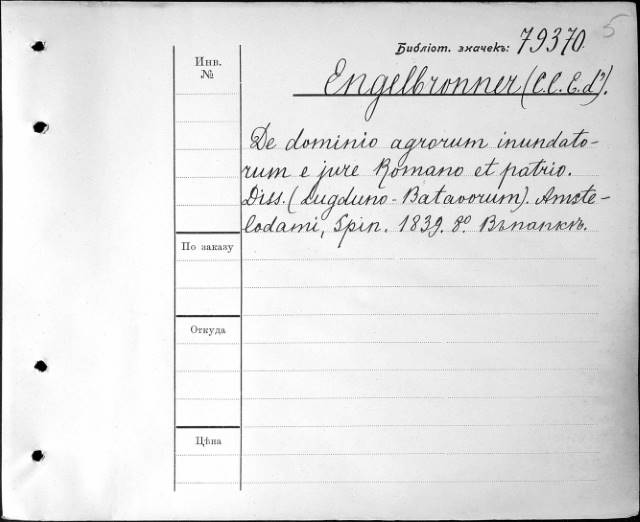 5
Библіот. значекъ: 79370.
Инв.
№
Engelbronner (C. C. E. d').
De dominio agrorum inundato-
rum e jure Romano et patrio.
Diss. (Lugduno-Batavorum). Amste-
lodami, Spin. 1839. 8º. Въ папкѣ.
По заказу
Откуда
Цѣна